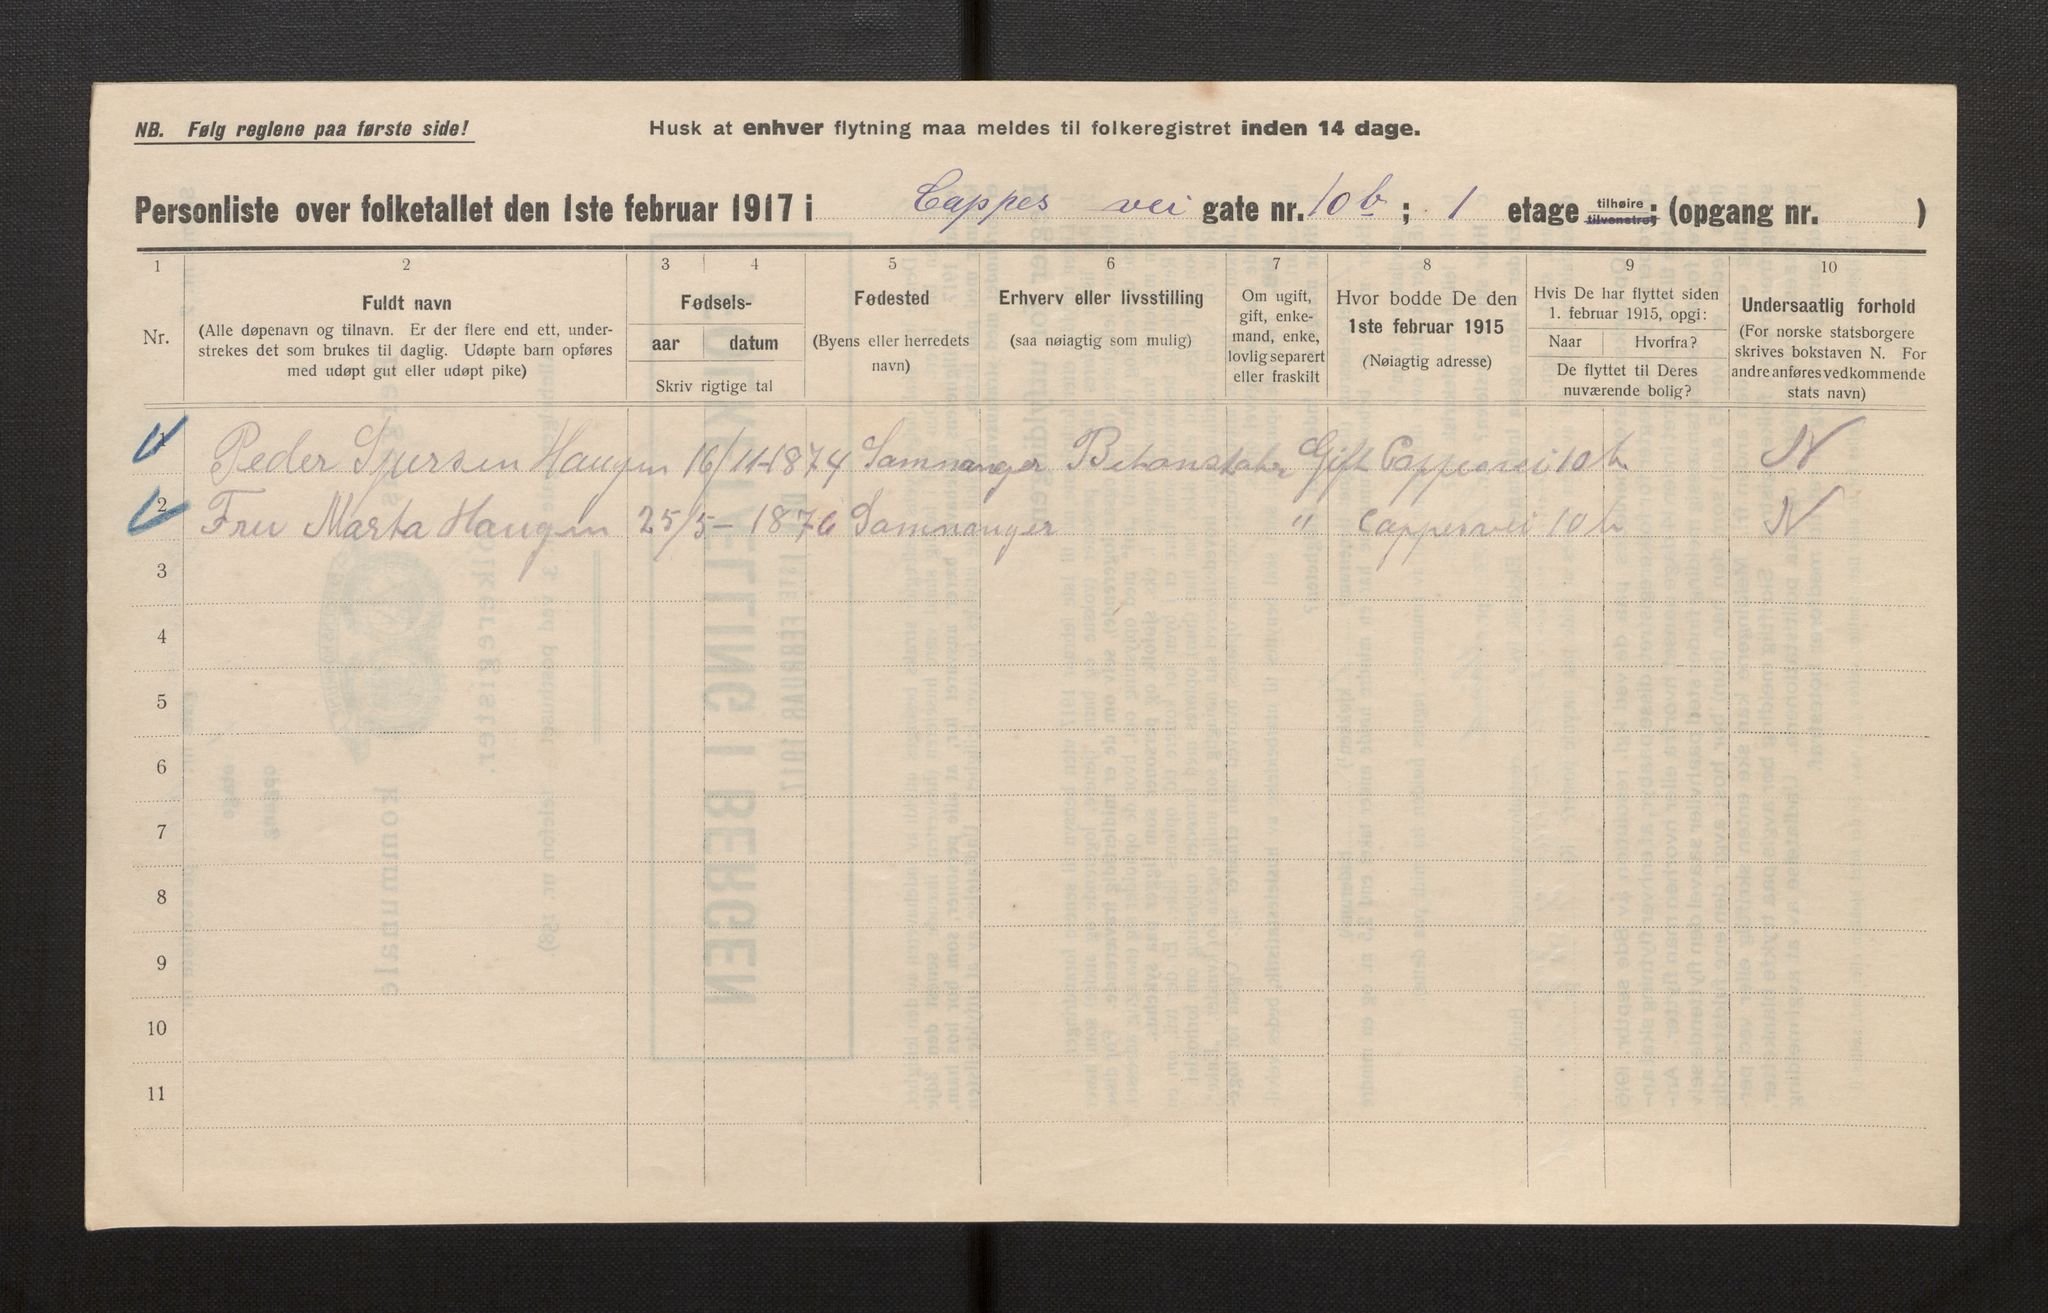 NB. Følg reglene paa første side!
Husk at enhver flytning maa meldes til folkeregistret inden 14 dage.
Personliste over folketallet den 1ste februar 1917 i Cappes vei gate nr. 10 b ; 1 etage tilhøire tilvenstre ; (opgang nr. )
1 2 3 4 5 6 7 8 9 10
Nr.
Fuldt navn
(Alle døpenavn og tilnavn. Er der flere end ett, under-
strekes det som brukes til daglig. Udøpte barn opføres
med udøpt gut eller udøpt pike)
Fødsels-
aar datum
Skriv rigtige tal
Fødested
(Byens eller herredets
navn)
Erhverv eller livsstilling
(saa nøiagtig som mulig)
Om ugift,
gift, enke-
mand, enke,
lovlig separert
eller fraskilt
Hvor bodde De den
1ste februar 1915
(Nøiagtig adresse)
Hvis De har flyttet siden
1. februar 1915, opgi:
Naar Hvorfra?
De flyttet til Deres
nuværende bolig?
Undersaatlig forhold
(For norske statsborgere
skrives bokstaven N. For
andre anføres vedkommende
stats navn)
1 Peder Haugen 16/11-1874 Samnanger Gift Cappesvei 10 b N
2 Fru Marta Haugen 25/5-1876 Samnanger " Cappesvei 10 b N
3
4
5
6
7
8
9
10
11